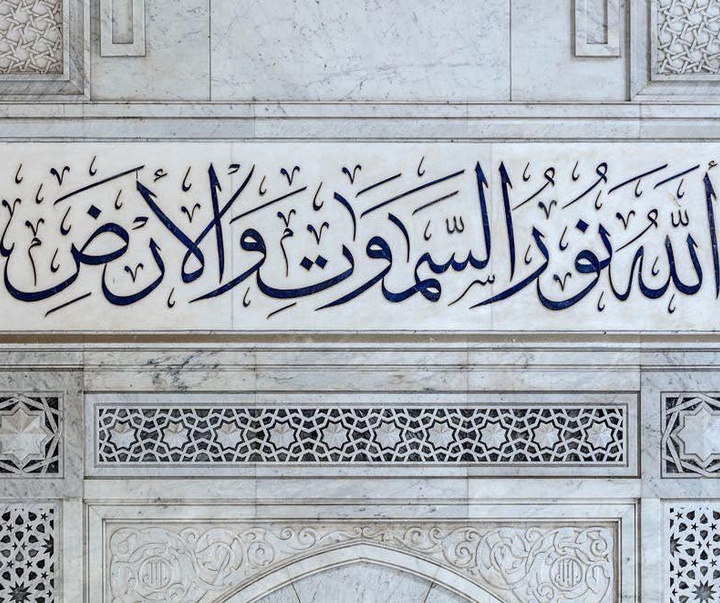 اَللّٰهُ نُورُ السَّمٰوَاتِ وَالْأَرْضِ